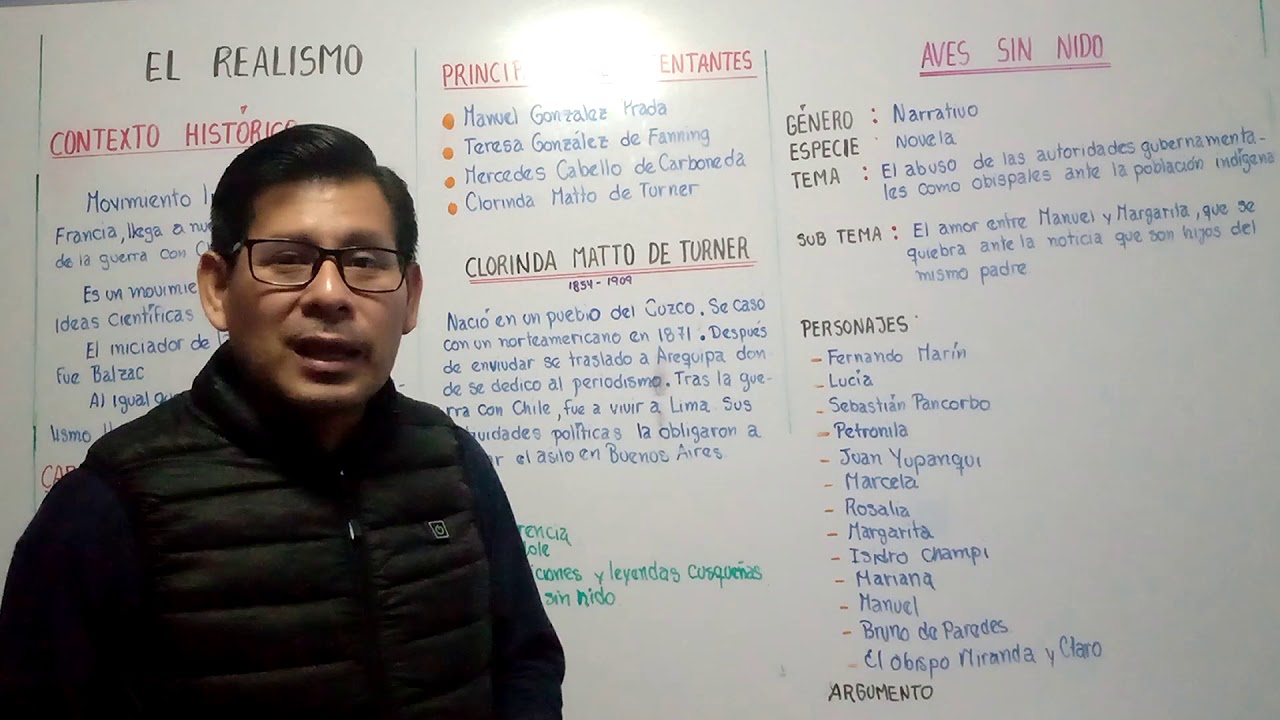 EL REALISMO
CONTEXTO HISTÓRICO
Movimiento
Francia, llega a
de la guerra con
Es un
Ideas Científicas
El iniciador de
Fue Balzac
Al igual
PRINCIP ENTANTES
Manuel Gonzalez Prada
Teresa González de Fanning
Mercedes Cabello de Carboneda
Clorinda Matto de Turner
CLORINDA MATTO DE TURNER
1854 - 1909
Nació en un pueblo del Cuzco. Se casó
con un norteamericano en 1871. Después
de enviudar se traslado a Arequipa don-
de se dedico al periodismo. Tras la gue-
rra con Chile, fue a vivir a Lima. Sus
políticas la obligaron a
el asilo en Buenos Aires.
y leyendas cusqueñas
sin nido
AVES SIN NIDO
GÉNERO : Narrativo
ESPECIE : Novela
TEMA : El abuso de las autoridades gubernamenta-
les como obispales ante la población indígena
SUB TEMA : El amor entre Manuel y Margarita, que se
quiebra ante la noticia que son hijos del
mismo padre
PERSONAJES :
- Fernando Marín
- Lucía
- Sebastián Pancorbo
- Petronila
- Juan Yupanqui
- Marcela
- Rosalia
- Margarita
- Isidro Champi
- Mariana
- Manuel
- Bruno de Paredes
- El obispo Miranda y Claro
ARGUMENTO